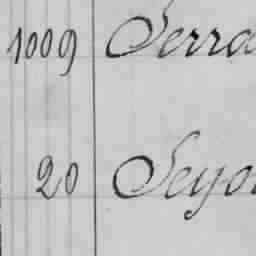 1009 Serra
20 Seyo